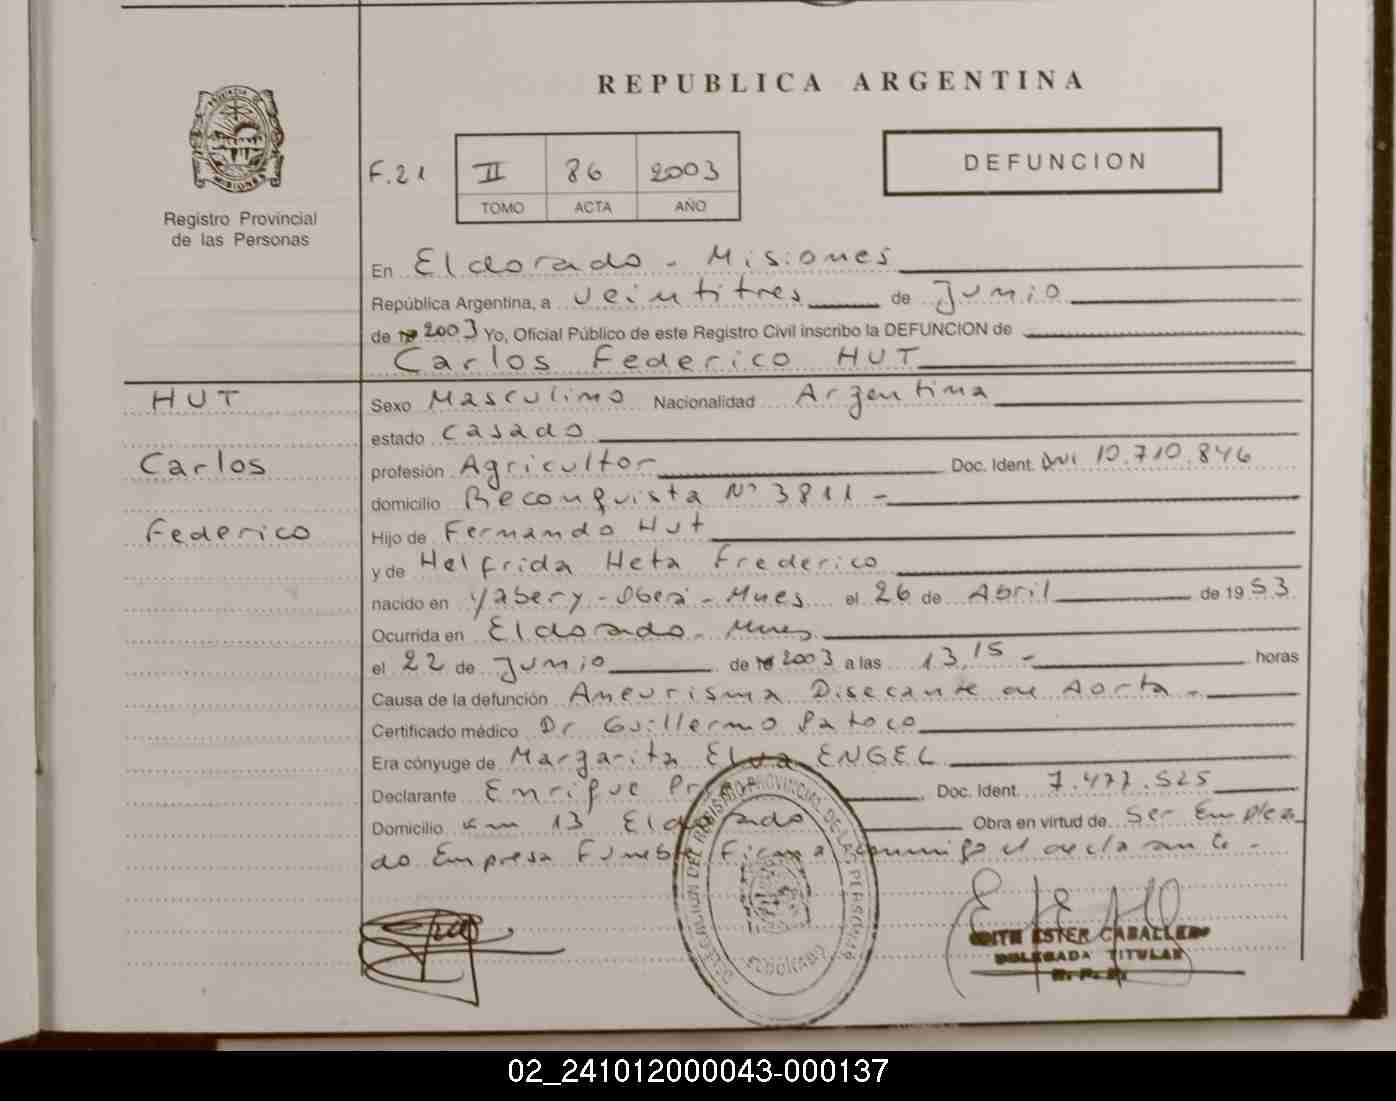 REPUBLICA ARGENTINA
PROVINCIA DE MISIONES
Registro Provincial
de las Personas
F.21 II 86 2003
TOMO ACTA AÑO
DEFUNCION
En Eldorado - Misiones
República Argentina, a veintitres de Junio
de 2003 Yo, Oficial Público de este Registro Civil inscribo la DEFUNCION de
Carlos Federico HUT
HUT
Carlos
Federico
Sexo Masculino Nacionalidad Argentina
estado casado
profesión Agricultor Doc. Ident. DNI 10.710.846
domicilio Reconquista Nº 3811 -
Hijo de Fernando Hut
y de Helfrida Heta Frederico
nacido en Yabery - Oberá - Mnes el 26 de Abril de 1953
Ocurrida en Eldorado - Mnes
el 22 de Junio de 2003 a las 13,15 - horas
Causa de la defunción Aneurisma Disecante de Aorta -
Certificado médico Dr Guillermo
Era cónyuge de Margarita Elva ENGEL
Declarante Enrique Doc. Ident. 7.477.525
Domicilio Km 13 Eldorado Obra en virtud de Ser Emplea
do Empresa Funebre Firma conmigo el declarante -
DELEGACION DEL REGISTRO PROVINCIAL DE LAS PERSONAS
ELDORADO
EDITH ESTER CABALLERO
DELEGADA TITULAR
R. P. P.
02_241012000043-000137